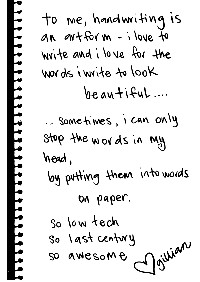 to me, handwriting is
an artform - i love to
write and i love for the
words i write to look
beautiful....
.. sometimes, i can only
stop the words in my
head,
by putting them into words
on paper.
so low tech
so last century
so awesome
gillian